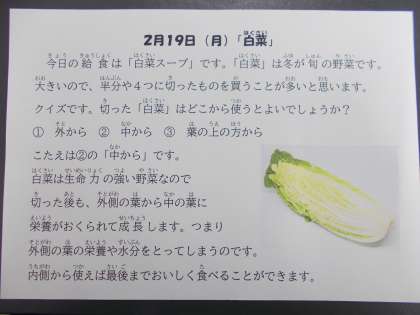 2月19日（月）「白菜」
今日の給食は「白菜スープ」です。「白菜」は冬が旬の野菜です。
大きいので、半分や４つに切ったものを買うことが多いと思います。
クイズです。切った「白菜」はどこから使うとよいでしょうか？
① 外から ② 中から ③ 葉の上の方から
こたえは②の「中から」です。
白菜は生命力の強い野菜なので
切った後も、外側の葉から中の葉に
栄養がおくられて成長します。つまり
外側の葉の栄養や水分をとってしまうのです。
内側から使えば最後までおいしく食べることができます。